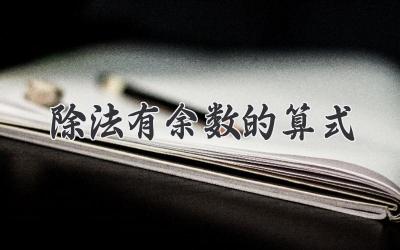 除法有余数的算式